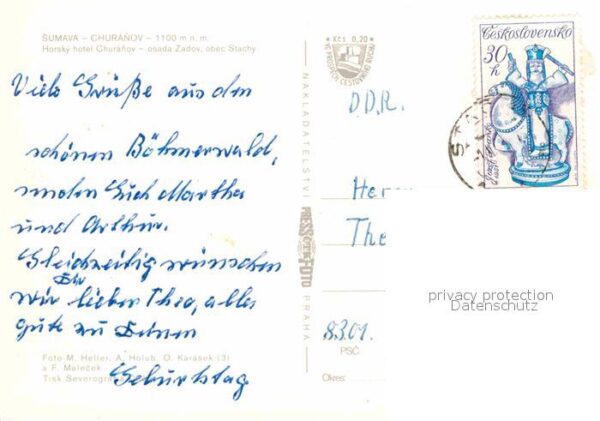 ŠUMAVA – CHURÁŇOV – 1100 m n. m.
Horský hotel Churáňov – osada Zadov, obec Stachy
Viele Grüße aus dem
schönen Böhmerwald,
senden Euch Martha
und Arthur.
Gleichzeitig wünschen
Dir
wir lieber Theo, alles
gute zu Deinen
Geburtstag
Foto M. Heller, A. Holub, O. Karásek (3)
a F. Maleček
Tisk Severogra
NAKLADATELSTVÍ
PRESSFOTO
PRAHA
Kčs 0,20
VE PROSPĚCH CESTOVNÍHO RUCHU
Československo
30 h
D.D.R.
Her
The
8301.
PSČ
Okres:
privacy protection
Datenschutz